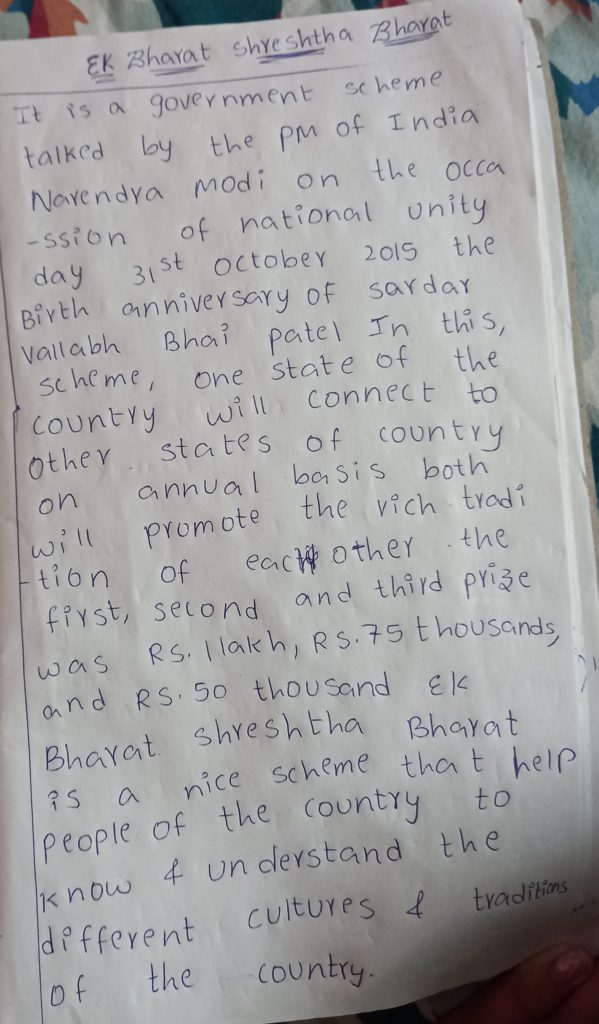 EK Bharat shreshtha Bharat
It is a government scheme
talked by the PM of India
Narendra modi on the occa
-ssion of national unity
day 31st october 2015 the
Birth anniversary of sardar
vallabh Bhai patel In this,
scheme, one state of the
country will connect to
other states of country
on annual basis both
will promote the rich tradi
-tion of each other the
first, second and third prize
was RS. 1 lakh, RS. 75 thousands,
and RS. 50 thousand EK
Bharat shreshtha Bharat
is a nice scheme that help
people of the country to
know & understand the
different cultures & traditions
of the country.